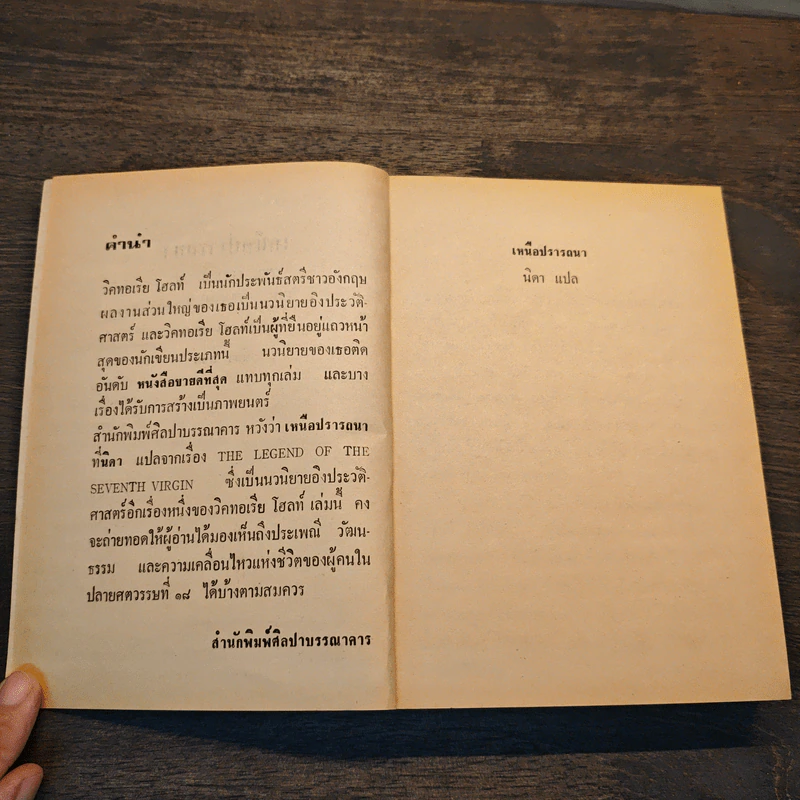 คำนำ
วิคทอเรีย โฮลท์ เป็นนักประพันธ์สตรีชาวอังกฤษ
ผลงานส่วนใหญ่ของเธอเป็นนวนิยายอิงประวัติ-
ศาสตร์ และวิคทอเรีย โฮลท์เป็นผู้ที่ยืนอยู่แถวหน้า
สุดของนักเขียนประเภทนี้ นวนิยายของเธอติด
อันดับ หนังสือขายดีที่สุด แทบทุกเล่ม และบาง
เรื่องได้รับการสร้างเป็นภาพยนตร์
สำนักพิมพ์ศิลปาบรรณาคาร หวังว่า เหนือปรารถนา
ที่นิดา แปลจากเรื่อง THE LEGEND OF THE
SEVENTH VIRGIN ซึ่งเป็นนวนิยายอิงประวัติ-
ศาสตร์อีกเรื่องหนึ่งของวิคทอเรีย โฮลท์ เล่มนี้ คง
จะถ่ายทอดให้ผู้อ่านได้มองเห็นถึงประเพณี วัฒน-
ธรรม และความเคลื่อนไหวแห่งชีวิตของผู้คนใน
ปลายศตวรรษที่ ๑๘ ได้บ้างตามสมควร
สำนักพิมพ์ศิลปาบรรณาคาร
เหนือปรารถนา
นิดา แปล